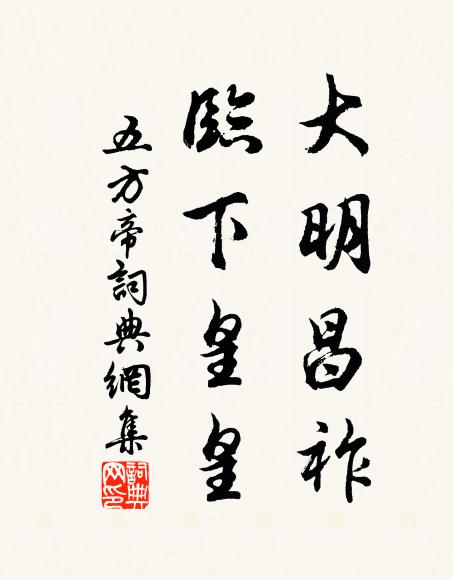 大明昌祚
臨下皇皇
五方帝詞典網集
詞典网印